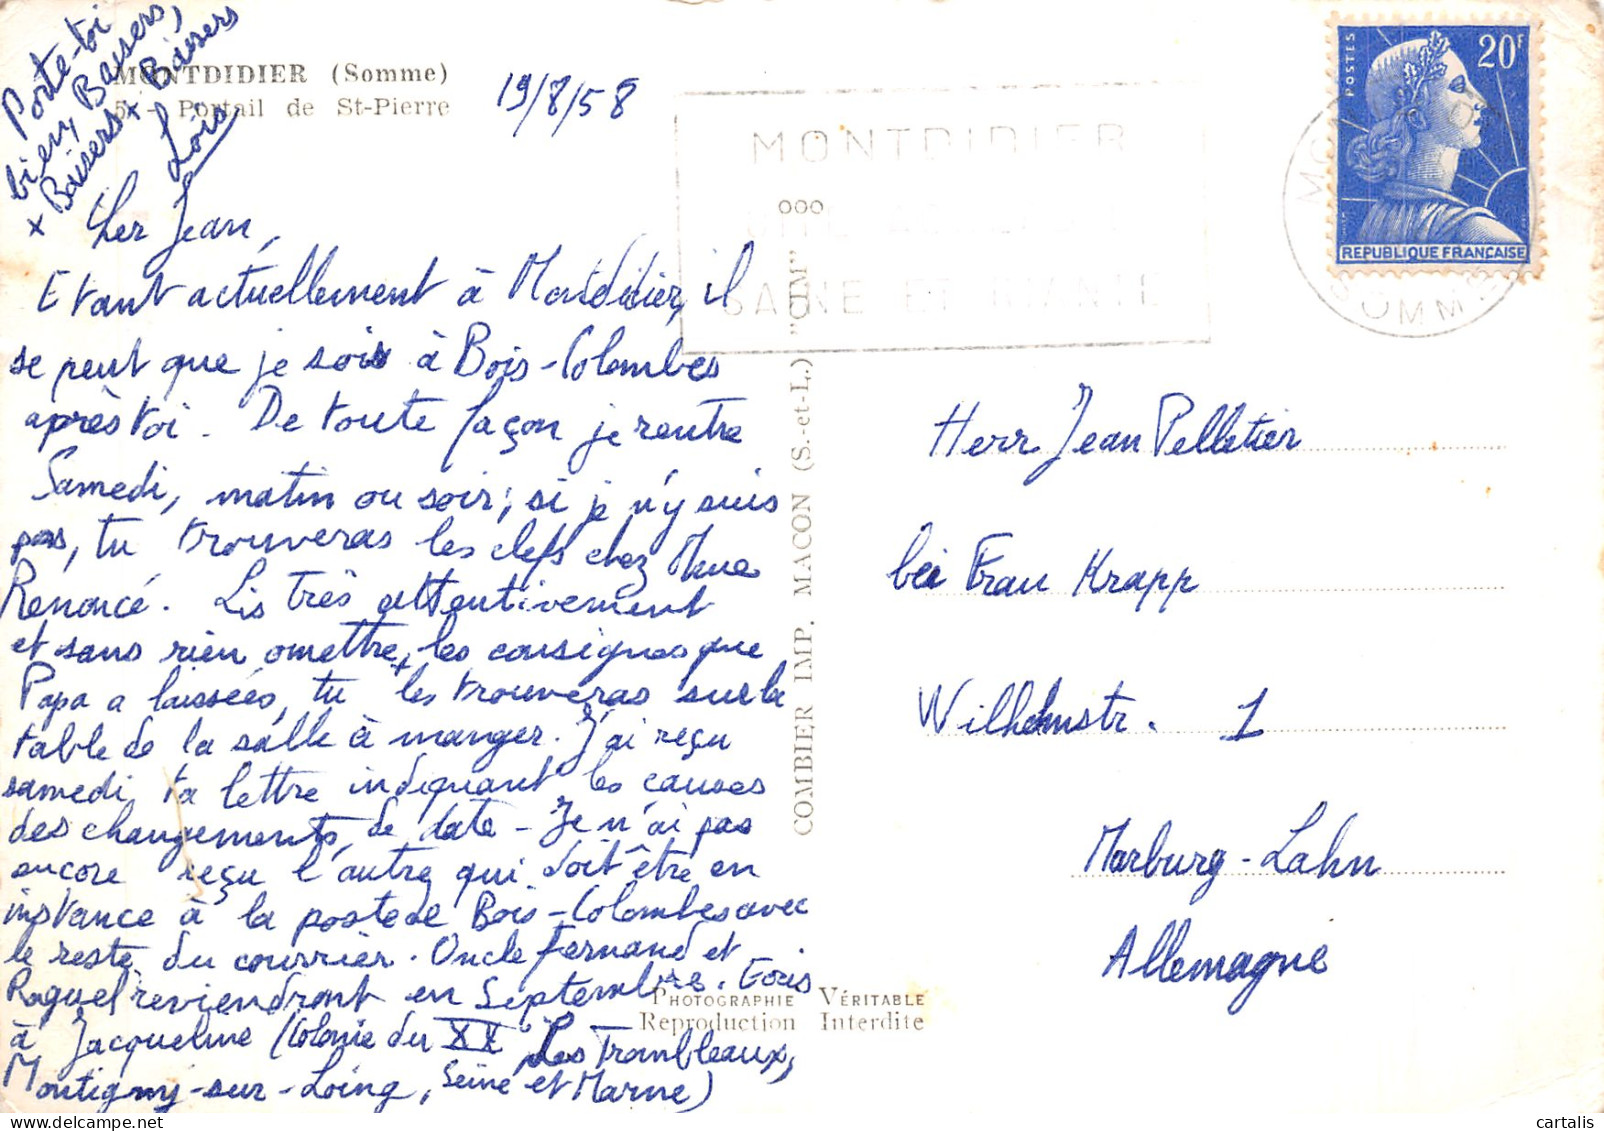 Porte-toi
bien, Baisers,
x Baisers x Baisers
Loïs
MONTDIDIER (Somme)
5. - Portail de St-Pierre
19/8/58
Cher Jean,
Etant actuellement à Montdidier, il
se peut que je sois à Bois-Colombes
après toi. De toute façon je rentre
Samedi, matin ou soir; si je n'y suis
pas, tu trouveras les clefs chez Mme
Renoncé. Lis très attentivement
et sans rien omettre, les consignes que
Papa a laissées, tu les trouveras sur la
table de la salle à manger. J'ai reçu
samedi ta lettre indiquant les causes
des changements de date - Je n'ai pas
encore reçu l'autre qui doit être en
instance à la poste de Bois-Colombes avec
le reste du courrier. Oncle Fernand et
Raquel reviendront en Septembre. Ecris
à Jacqueline (Colonie du XXe Les Trembleaux,
Montigny-sur-Loing, Seine et Marne)
COMBIER IMP. MACON (S.-et-L.) "CIM"
PHOTOGRAPHIE VÉRITABLE
Reproduction Interdite
MONTDIDIER
SAINE ET RIANTE
POSTES
20F
REPUBLIQUE FRANÇAISE
SOMME
Herr Jean Pelletier
bei Frau Krapp
Wilhelmstr. 1
Marburg-Lahn
Allemagne
cartalis